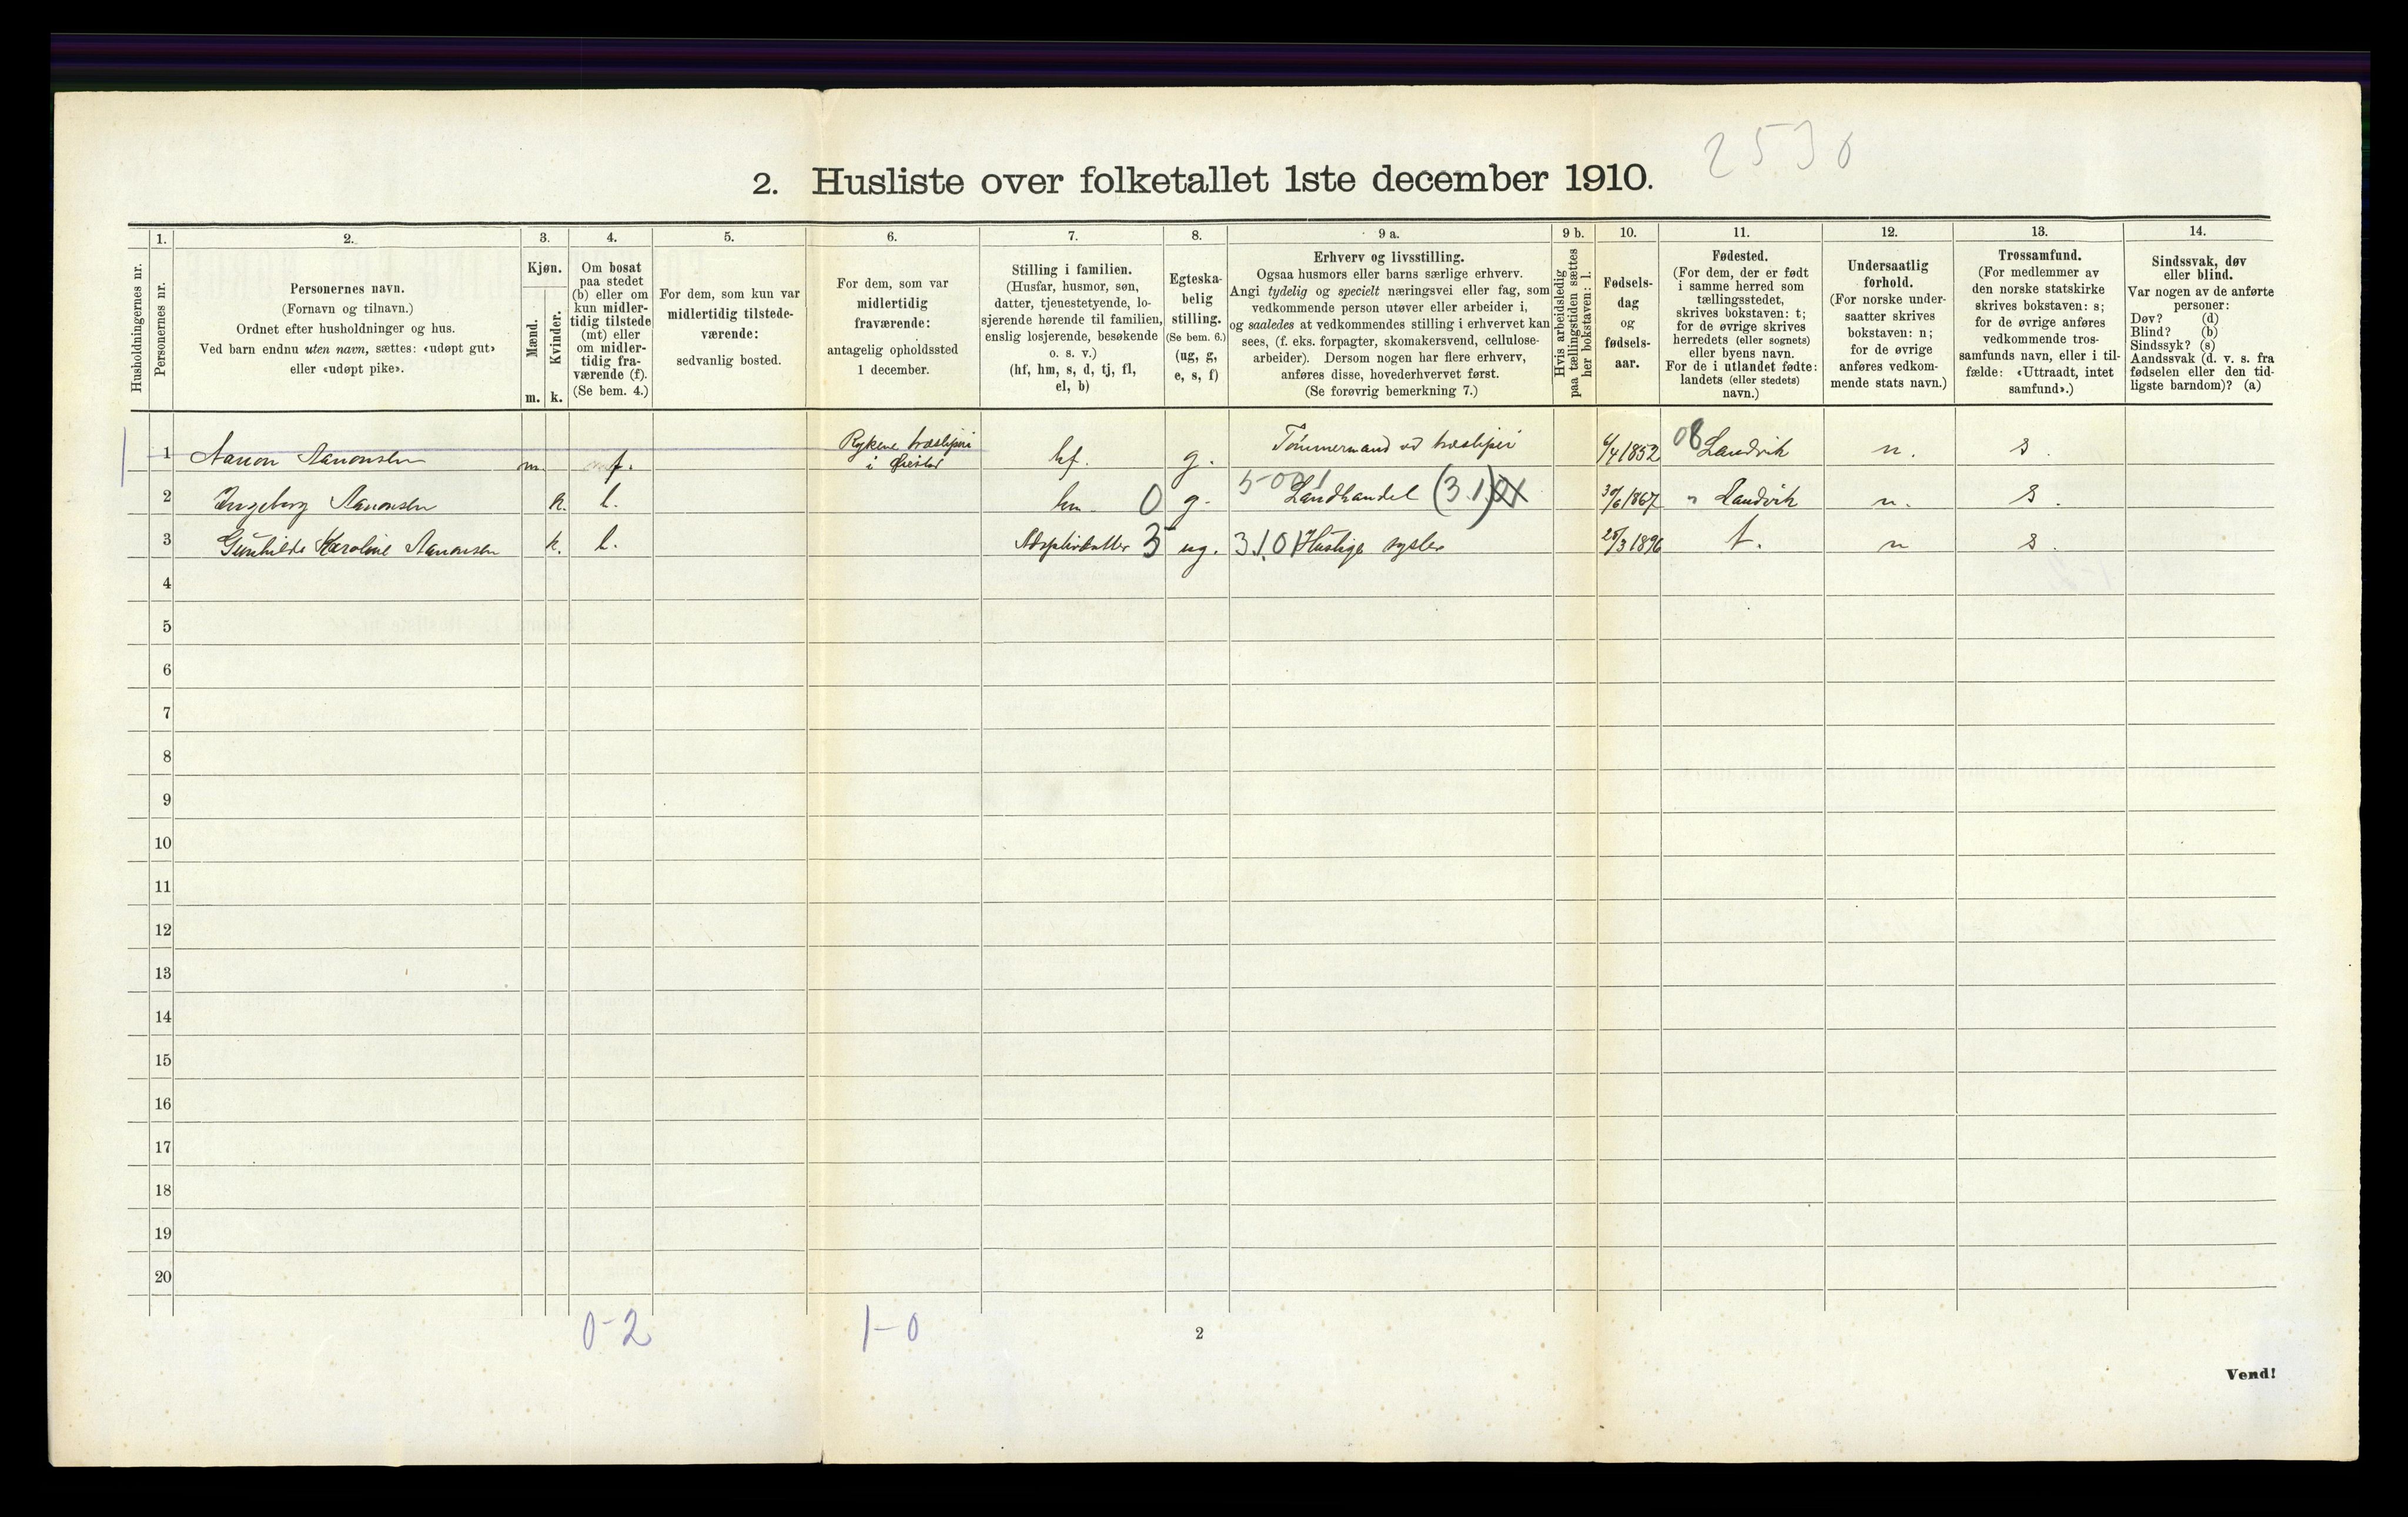 2530
2. Husliste over folketallet 1ste december 1910.
Husholdningernes nr.
1.
Personernes nr.
2.
Personernes navn.
(Fornavn og tilnavn.)
Ordnet efter husholdninger og hus.
Ved barn endnu uten navn, sættes: «udøpt gut»
eller «udøpt pike».
3.
Kjøn.
Mænd.
m.
Kvinder.
k.
4.
Om bosat
paa stedet
(b) eller om
kun midler-
tidig tilstede
(mt) eller
om midler-
tidig fra-
værende (f).
(Se bem. 4.)
5.
For dem, som kun var
midlertidig tilstede-
værende:
sedvanlig bosted.
6.
For dem, som var
midlertidig
fraværende:
antagelig opholdssted
1 december.
7.
Stilling i familien.
(Husfar, husmor, søn,
datter, tjenestetyende, lo-
sjerende hørende til familien,
enslig losjerende, besøkende
o. s. v.)
(hf, hm, s, d, tj, fl,
el, b)
8.
Egteska-
belig
stilling.
(Se bem. 6.)
(ug, g,
e, s, f)
9 a.
Erhverv og livsstilling.
Ogsaa husmors eller barns særlige erhverv.
Angi tydelig og specielt næringsvei eller fag, som
vedkommende person utøver eller arbeider i,
og saaledes at vedkommendes stilling i erhvervet kan
sees, (f. eks. forpagter, skomakersvend, cellulose-
arbeider). Dersom nogen har flere erhverv,
anføres disse, hovederhvervet først.
(Se forøvrig bemerkning 7.)
9 b.
Hvis arbeidsledig
paa tællingstiden sættes
her bokstaven: l.
10.
Fødsels-
dag
og
fødsels-
aar.
11.
Fødested.
(For dem, der er født
i samme herred som
tællingsstedet,
skrives bokstaven: t;
for de øvrige skrives
herredets (eller sognets)
eller byens navn.
For de i utlandet fødte:
landets (eller stedets)
navn.)
12.
Undersaatlig
forhold.
(For norske under-
saatter skrives
bokstaven: n;
for de øvrige
anføres vedkom-
mende stats navn.)
13.
Trossamfund.
(For medlemmer av
den norske statskirke
skrives bokstaven: s;
for de øvrige anføres
vedkommende tros-
samfunds navn, eller i til-
fælde: «Uttraadt, intet
samfund».)
14.
Sindssvak, døv
eller blind.
Var nogen av de anførte
personer:
Døv? (d)
Blind? (b)
Sindssyk? (s)
Aandssvak (d. v. s. fra
fødselen eller den tid-
ligste barndom)? (a)
1 Aanon Aanonsen m. f. Rykene træsliperi i Øiestad hf. g. Tømmermand ved træsliperi 6/4 1852 08 Landvik n. s.
2 Ingeborg Aanonsen k. b. hm. 0 g. Landhandel (3.1) 30/6 1867 " Landvik n. s.
3 Gunhilde Karoline Aanonsen k. b. Adoptivdatter 3 ug. 3101 Huslige sysler 25/3 1896 t. n s.
4
5
6
7
8
9
10
11
12
13
14
15
16
17
18
19
20
0-2 1-0
2
Vend!